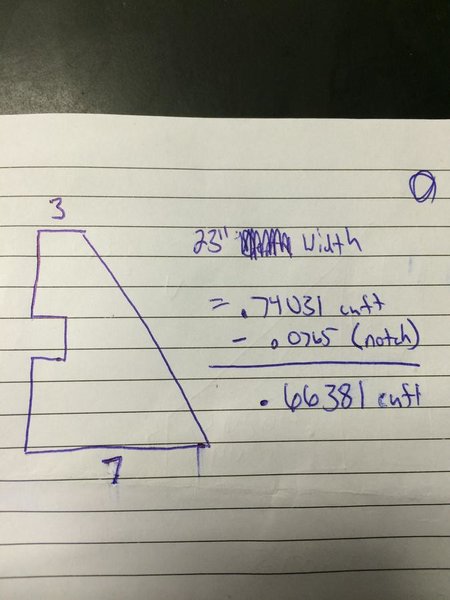 3
23" Width
= .74031 cuft
- .0765 (notch)
.66381 cuft
7